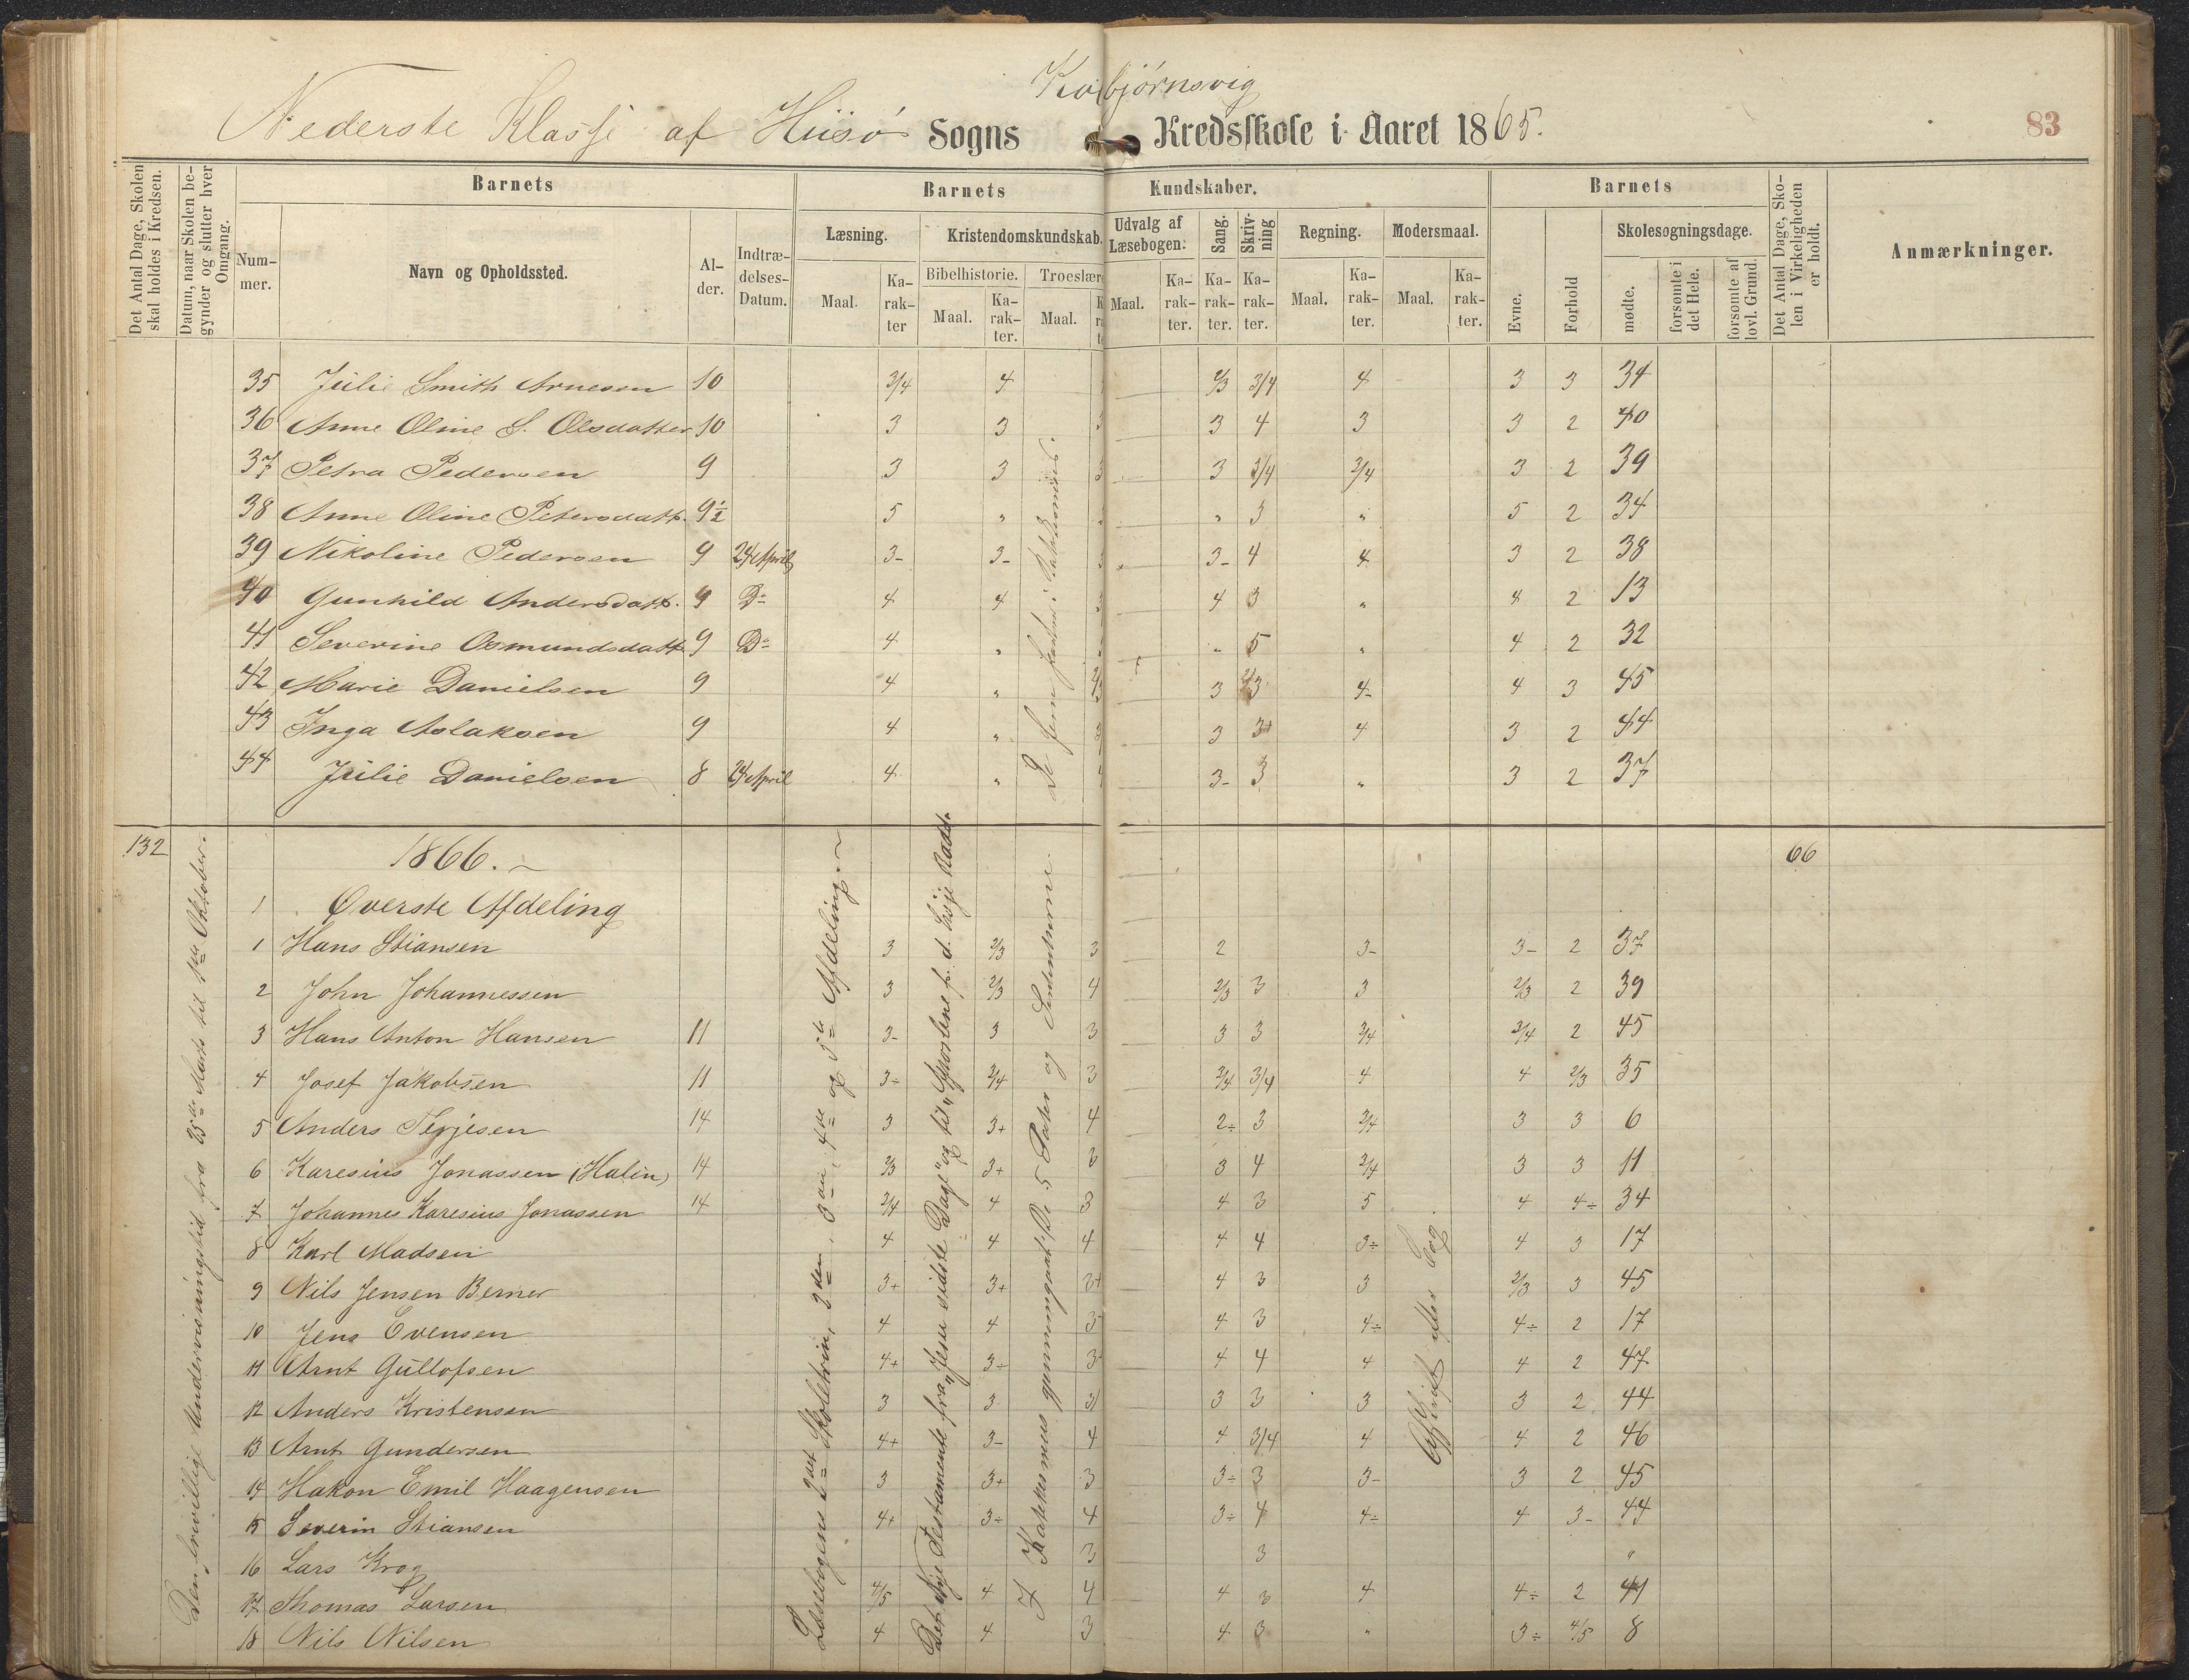 Kolbjørnsvig
Nederste Klasse af Hisø Sogns Kredsskole i Aaret 1865.
83
Det Antal Dage, Skolen skal holdes i Kredsen.
Datum, naar Skolen begynder og slutter hver Omgang.
Barnets
Barnets Kundskaber.
Barnets
Det Antal Dage, Skolen i Virkeligheden er holdt.
Anmærkninger.
Nummer.
Navn og Opholdssted.
Alder.
Indtrædelses-Datum.
Læsning.
Kristendomskundskab.
Udvalg af Læsebogen.
Sang.
Skrivning
Regning.
Modersmaal.
Evne.
Forhold
Skolesøgningsdage.
Bibelhistorie.
Troeslære
Maal. Karakter Maal. Karakter. Maal. Maal. Karakter. Karakter. Karakter. Maal. Karakter. Maal. Karakter.
mødte.
forsømte i det Hele.
forsømte af lovl. Grund.
35 Julie Smith Arnesen 10 3/4 4 2/3 3/4 4 3 3 34
36 Anne Oline S. Olsdatter 10 3 3 3 3 4 3 3 2 40
37 Petra Pedersen 9 3 3 3 3 3/4 3/4 3 2 39
38 Anne Oline Petersdatt. 9½ 5 " " 3 " 5 2 34
39 Nikoline Pedersen 9 24 April 3- 3- 3- 4 4 3 2 38
40 Gunhild Andersdatt. 9 Do 4 4 4 3 " 4 2 13
41 Severine Osmundsdatt 9 Do 4 " " 5 " 4 2 32
42 Marie Danielsen 9 4 " 3 4- 4 3 45
43 Inga Aslaksen 9 4 " 3 3+ 4 3 2 44
44 Julie Danielsen 8 24 April 4 " 4 3- 3 " 3 2 37
De fem Parter i Katekismus.
132
1866.
66
1 Øverste Afdeling
1 Hans Stiansen 3 2/3 3 2 3- 3- 2 37
2 John Johannessen 3 2/3 4 2/3 3 3 2/3 2 39
3 Hans Anton Hansen 11 3- 3 3 3 3 3/4 3/4 2 45
4 Josef Jakobsen 11 3÷ 3/4 3 3/4 3/4 4 4 2/3 35
5 Anders Terjesen 14 3 3+ 4 2÷ 3 3/4 3 3 6
6 Karesius Jonassen (Halin) 14 2/3 3+ 3 3 4 3/4 3 3 11
7 Johannes Karesius Jonassen 14 3/4 4 3 4 3 5 4 4÷ 34
8 Karl Madsen 4 4 4 4 4 3÷ 4 3 17
9 Nils Jensen Berner 3+ 3+ 3+ 4 3 3 2/3 3 45
10 Jens Evensen 4 4 3- 4 3 4÷ 4÷ 2 17
11 Arnt Gullofsen 4+ 3÷ 3- 4 4 4 4 2 47
12 Anders Kristensen 3 3 3 3 3 3 3 2 44
13 Arnt Gundersen 4+ 3- 4 4 3/4 4 4 2 46
14 Hakon Emil Haagensen 3 3+ 3 3÷ 3 3- 3 2 45
15 Severin Stiansen 4+ 3÷ 4 3÷ 4 4÷ 4 3- 44
16 Lars Krog 3 3 "
17 Thomas Larsen 4/5 4 4 4 3 4 4÷ 2 41
18 Nils Nilsen 4 4 3 4 3 " 3÷ 4/5 8
Den frivillige Undervisningstid fra 25de Marts til 1ste Oktober.
Læsebogens 2det Skoletrin, 2den, 3die, 4de og 5te Afdeling.
Det nye Testamente fra "Jesu sidste Dage" og til "Apostlene f. d. høje Raad".
I Katekismus gjennemgaaet De 5 Parter og
Afskrift efter Bog.